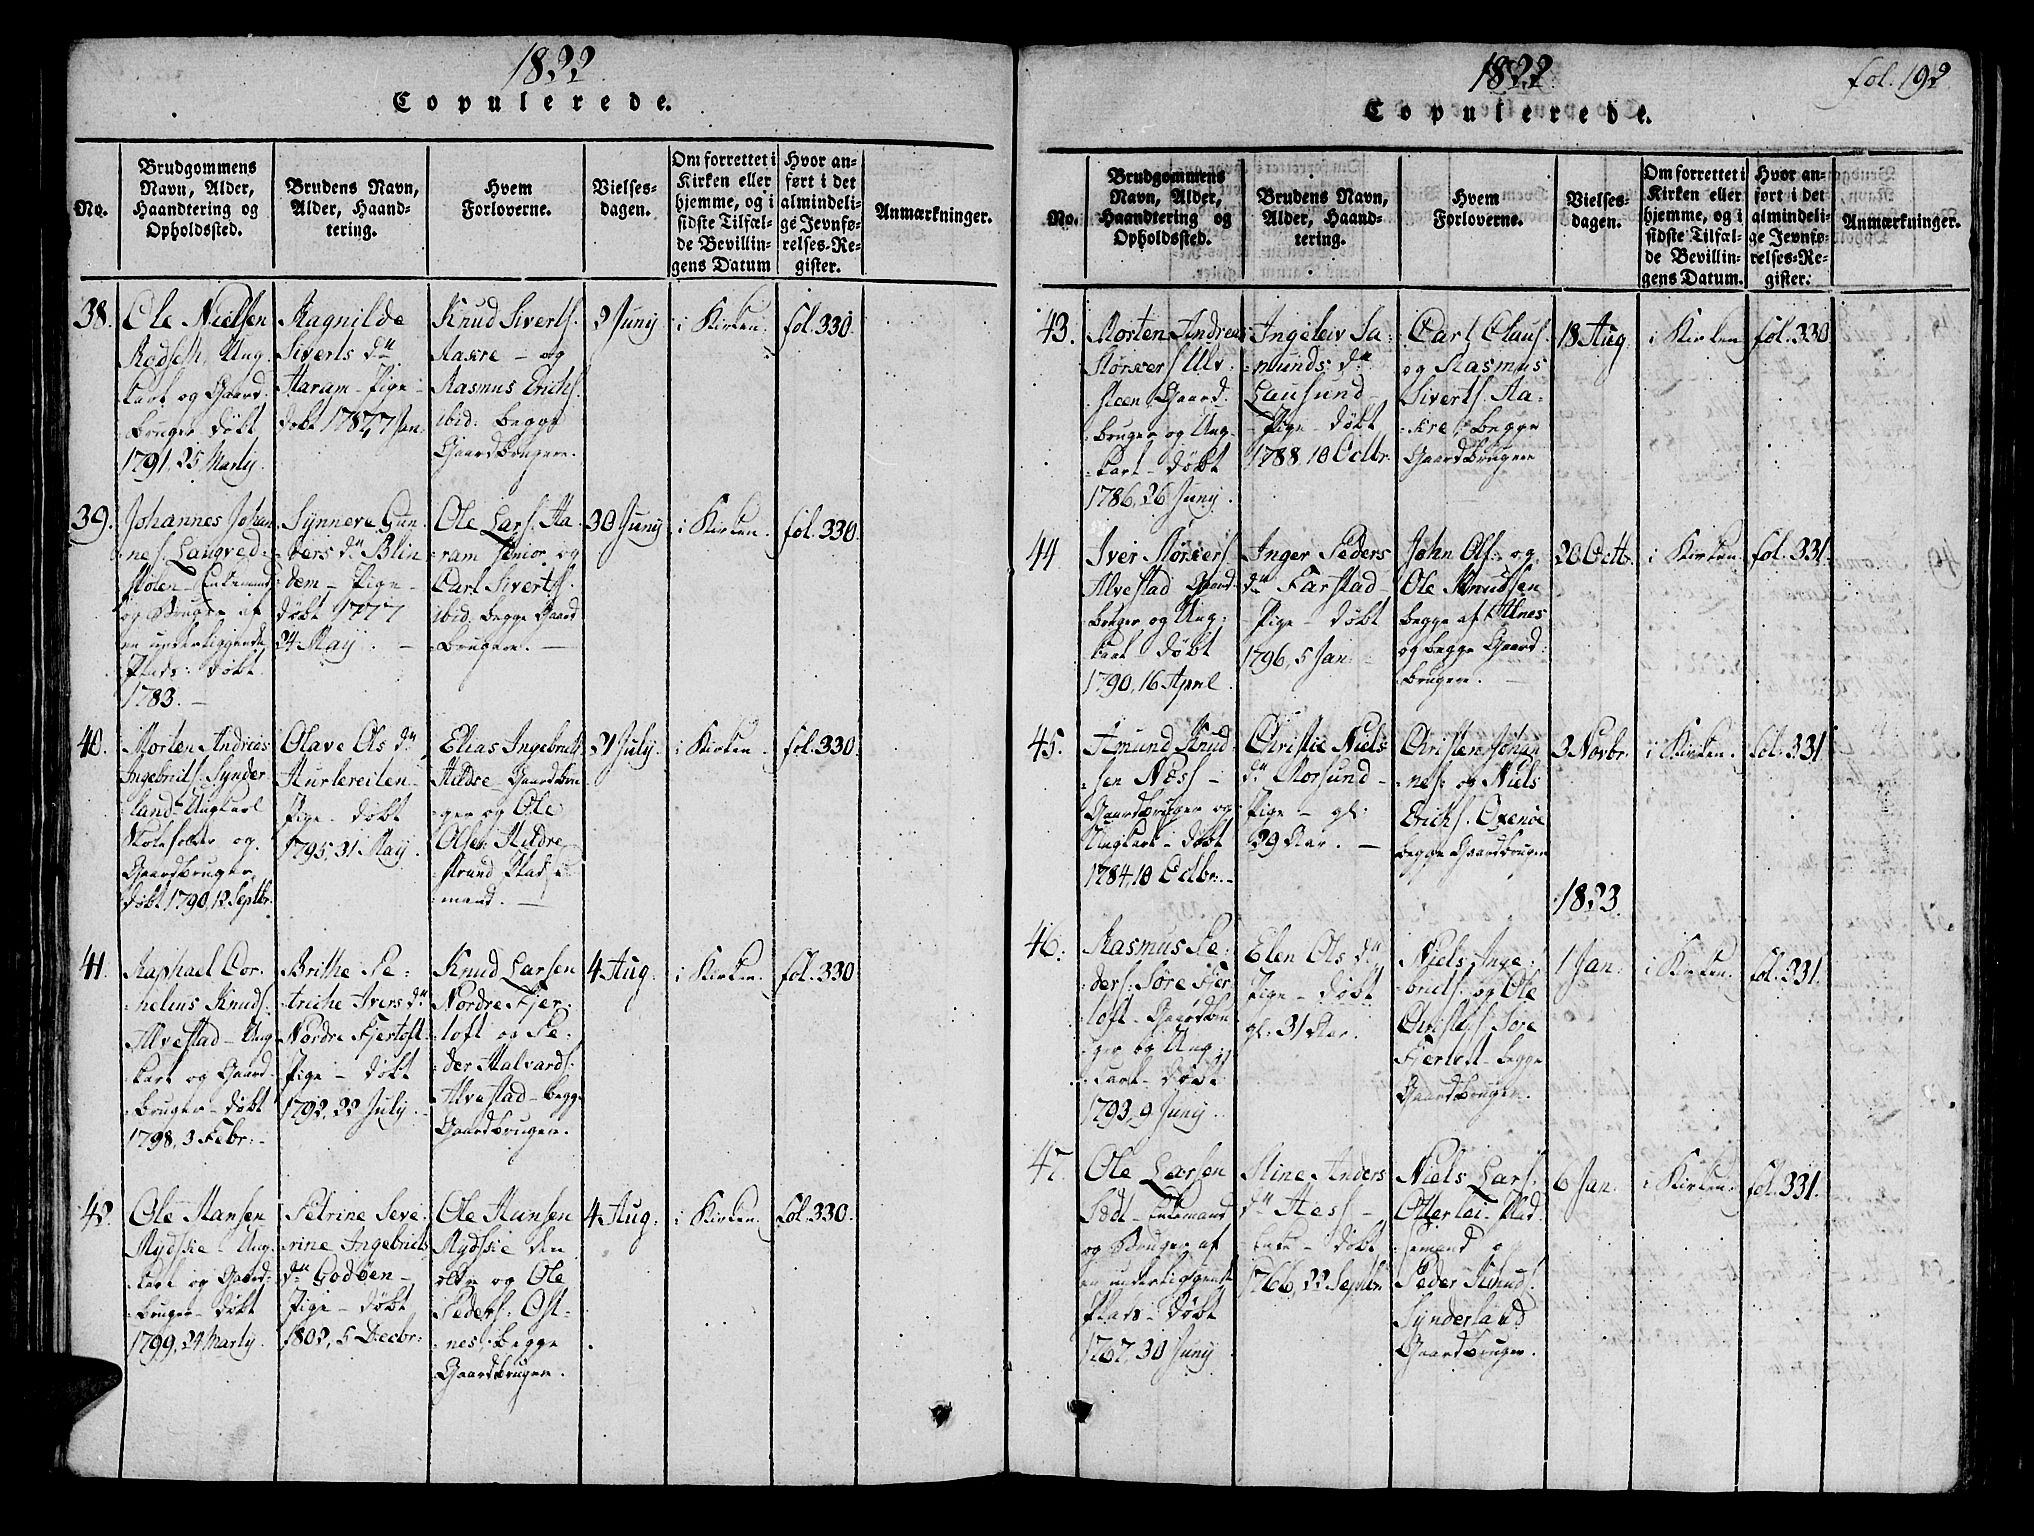 1822
Copulerede.
No.
Brudgommens
Navn, Alder,
Haandtering og
Opholdssted.
Brudens Navn,
Alder, Haand-
tering.
Hvem
Forloverne.
Vielses-
dagen.
Om forrettet i
Kirken eller
hjemme, og i
sidste Tilfæl-
de Bevillin-
gens Datum
Hvor an-
ført i det
almindeli-
ge Jevnfø-
relses-Re-
gister.
Anmærkninger.
38.
Ole Nielsen
Rødseth, Ung
karl og Gaard
bruger døbt
1791, 25 Martij.
Ragnilde
Siverts dr
Haram - Pige -
døbt 1787, 7 Jan:
Knud Siverts.
Aakre - og
Rasmus Erichs.
ibid: begge
Gaardbrugere.
2 Junij
i Kirken.
fol. 330
39.
Johannes Johan
nes. Laugved
stølen - Enkemand
og Bruger af
en underliggende
Plads: døbt
1783. -
Synneve Gun
ders dr Blin
dem - Pige -
døbt 1777
24 Maij. -
Ole Lars. Ha
ram senior og
Carl Siverts.
ibid. begge Gaard
brugere. -
30 Junij
i Kirken.
fol. 330.
40.
Morten Andreas
Ingebrits. Synder
land - Ungkarl
Skoleholder og
Gaardbruger,
døbt 1790, 12 Septbr.
Olave Ols dr
Hurlereiten -
Pige - døbt
1795, 31 Maij.
Elias Ingebrits.
Hildre - Gaardbru
ger og Ole
Olsen Hildre
strand Plads
mand. -
21 July.
i Kirken.
fol. 330.
41.
Raphael Cor
nelius Knuds.
Alvestad - Ung
karl og Gaard
bruger - døbt
1798, 3 Febr: -
Brithe Pe-
triche Ivers dr
Nordre Fjertoft
Pige - døbt
1792, 22 July.
Knud Larsen
Nordre Fjer-
toft og Pe-
der Halvards.
Alvestad - begge
Gaardbrugere.
4 Aug.
i Kirken.
fol. 330
42.
Ole Hansen
Mydssie Ung
karl og Gaard-
bruger - døbt
1799, 24 Martij.
Petrine Seve-
rine Ingebrits
dr Godøen -
Pige - døbt
1802, 5 Decbr:
Ole Hansen
Mydssie den
eldre og Ole
Peders: Ost-
nes, begge
Gaardbrugere.
4 Aug.
i Kirken.
fol. 330.
1822
fol. 192
Copulerede.
No.
Brudgommens
Navn, Alder,
Haandtering og
Opholdssted.
Brudens Navn,
Alder, Haand-
tering.
Hvem
Forloverne.
Vielses-
dagen.
Om forrettet i
Kirken eller
hjemme, og i
sidste Tilfæl-
de Bevillin-
gens Datum.
Hvor an-
ført i det
almindeli-
ge Jevnfø-
relses-Re-
gister:
Anmærkninger.
43.
Morten Andreas
Størkers Ulv
steen Gaard-
bruger og Ung-
karl - døbt
1786, 26 Junij.
Ingeleiv Sa-
munds: dr
Lausund -
- Pige - døbt
1788, 10 Octbr.
Carl Claus.
og Rasmus
Siverts. Aa-
kre, begge
Gaardbrugere
18 Aug.
i Kirken
fol. 330
44
Iver Størkers.
Alvestad Gaard-
bruger og Ung-
karl - døbt
1790, 16 April.
Inger Peders
dr Farstad -
Pige - døbt
1796, 5 Jan:
John Ols: og
Ole Knudsen
begge af Alnes
og begge Gaard-
brugere. -
20 Octbr.
i Kirken.
fol. 331.
45.
Amund Knud-
sen Næss -
Gaardbruger og
Ungkarl - døbt
1784, 10 Octbr. -
Christie Niels
dr Morsund -
Pige - gl:
29 Aar. -
Christen Johan
nes: og Niels
Erichs. Oxenöe
begge Gaardbrugere
3 Novbr.
i Kirken.
fol. 331.
1823.
46.
Rasmus Pe-
ders: Søre Fjer
toft - Gaardbru
ger og Ung-
karl - døbt
1793, 9 Junij.
Elen Ols dr
Pige - døbt
gl. 31 Aar.
Niels Inge-
brits: og Ole
Christophs. Søre
Fjertoft - begge
Gaardbrugere.
1 Jan:
i Kirken.
fol. 331.
47.
Ole Larsen
Sædt - Enkemand
og Bruger af
en underliggende
Plads - døbt
1767, 30 Junij
Stine Anders
dr Hess -
Enke - døbt
1766, 22 Septbr.
Niels Lars.
Otterlei - Plad
semand og
Peder Knuds.
Synderland
Gaardbruger.
6 Jan:
i Kirken.
fol. 331.